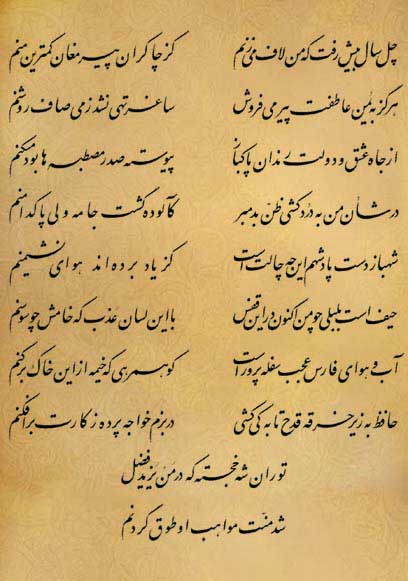 چل سال بیش رفت که من لاف می‌زنم کز چاکران پیر مغان کمترین منم
هرگز به یمن عاطفت پیر می فروش ساغر تهی نشد ز می صاف روشنم
از جاه عشق و دولت رندان پاکباز پیوسته صدر مصطبه‌ها بود مسکنم
در شأن من به دردکشی ظن بد مبر کآلوده گشت جامه ولی پاکدامنم
شهباز دست پادشهم این چه حالت است کز یاد برده‌اند هوای نشیمنم
حیف است بلبلی چو من اکنون در این قفس با این لسان عذب که خامش چو سوسنم
آب و هوای فارس عجب سفله پرور است کو همرهی که خیمه از این خاک برکنم
حافظ به زیر خرقه قدح تا به کی کشی در بزم خواجه پرده ز کارت برافکنم
توران شه خجسته که در من یزید فضل
شد منت مواهب او طوق گردنم